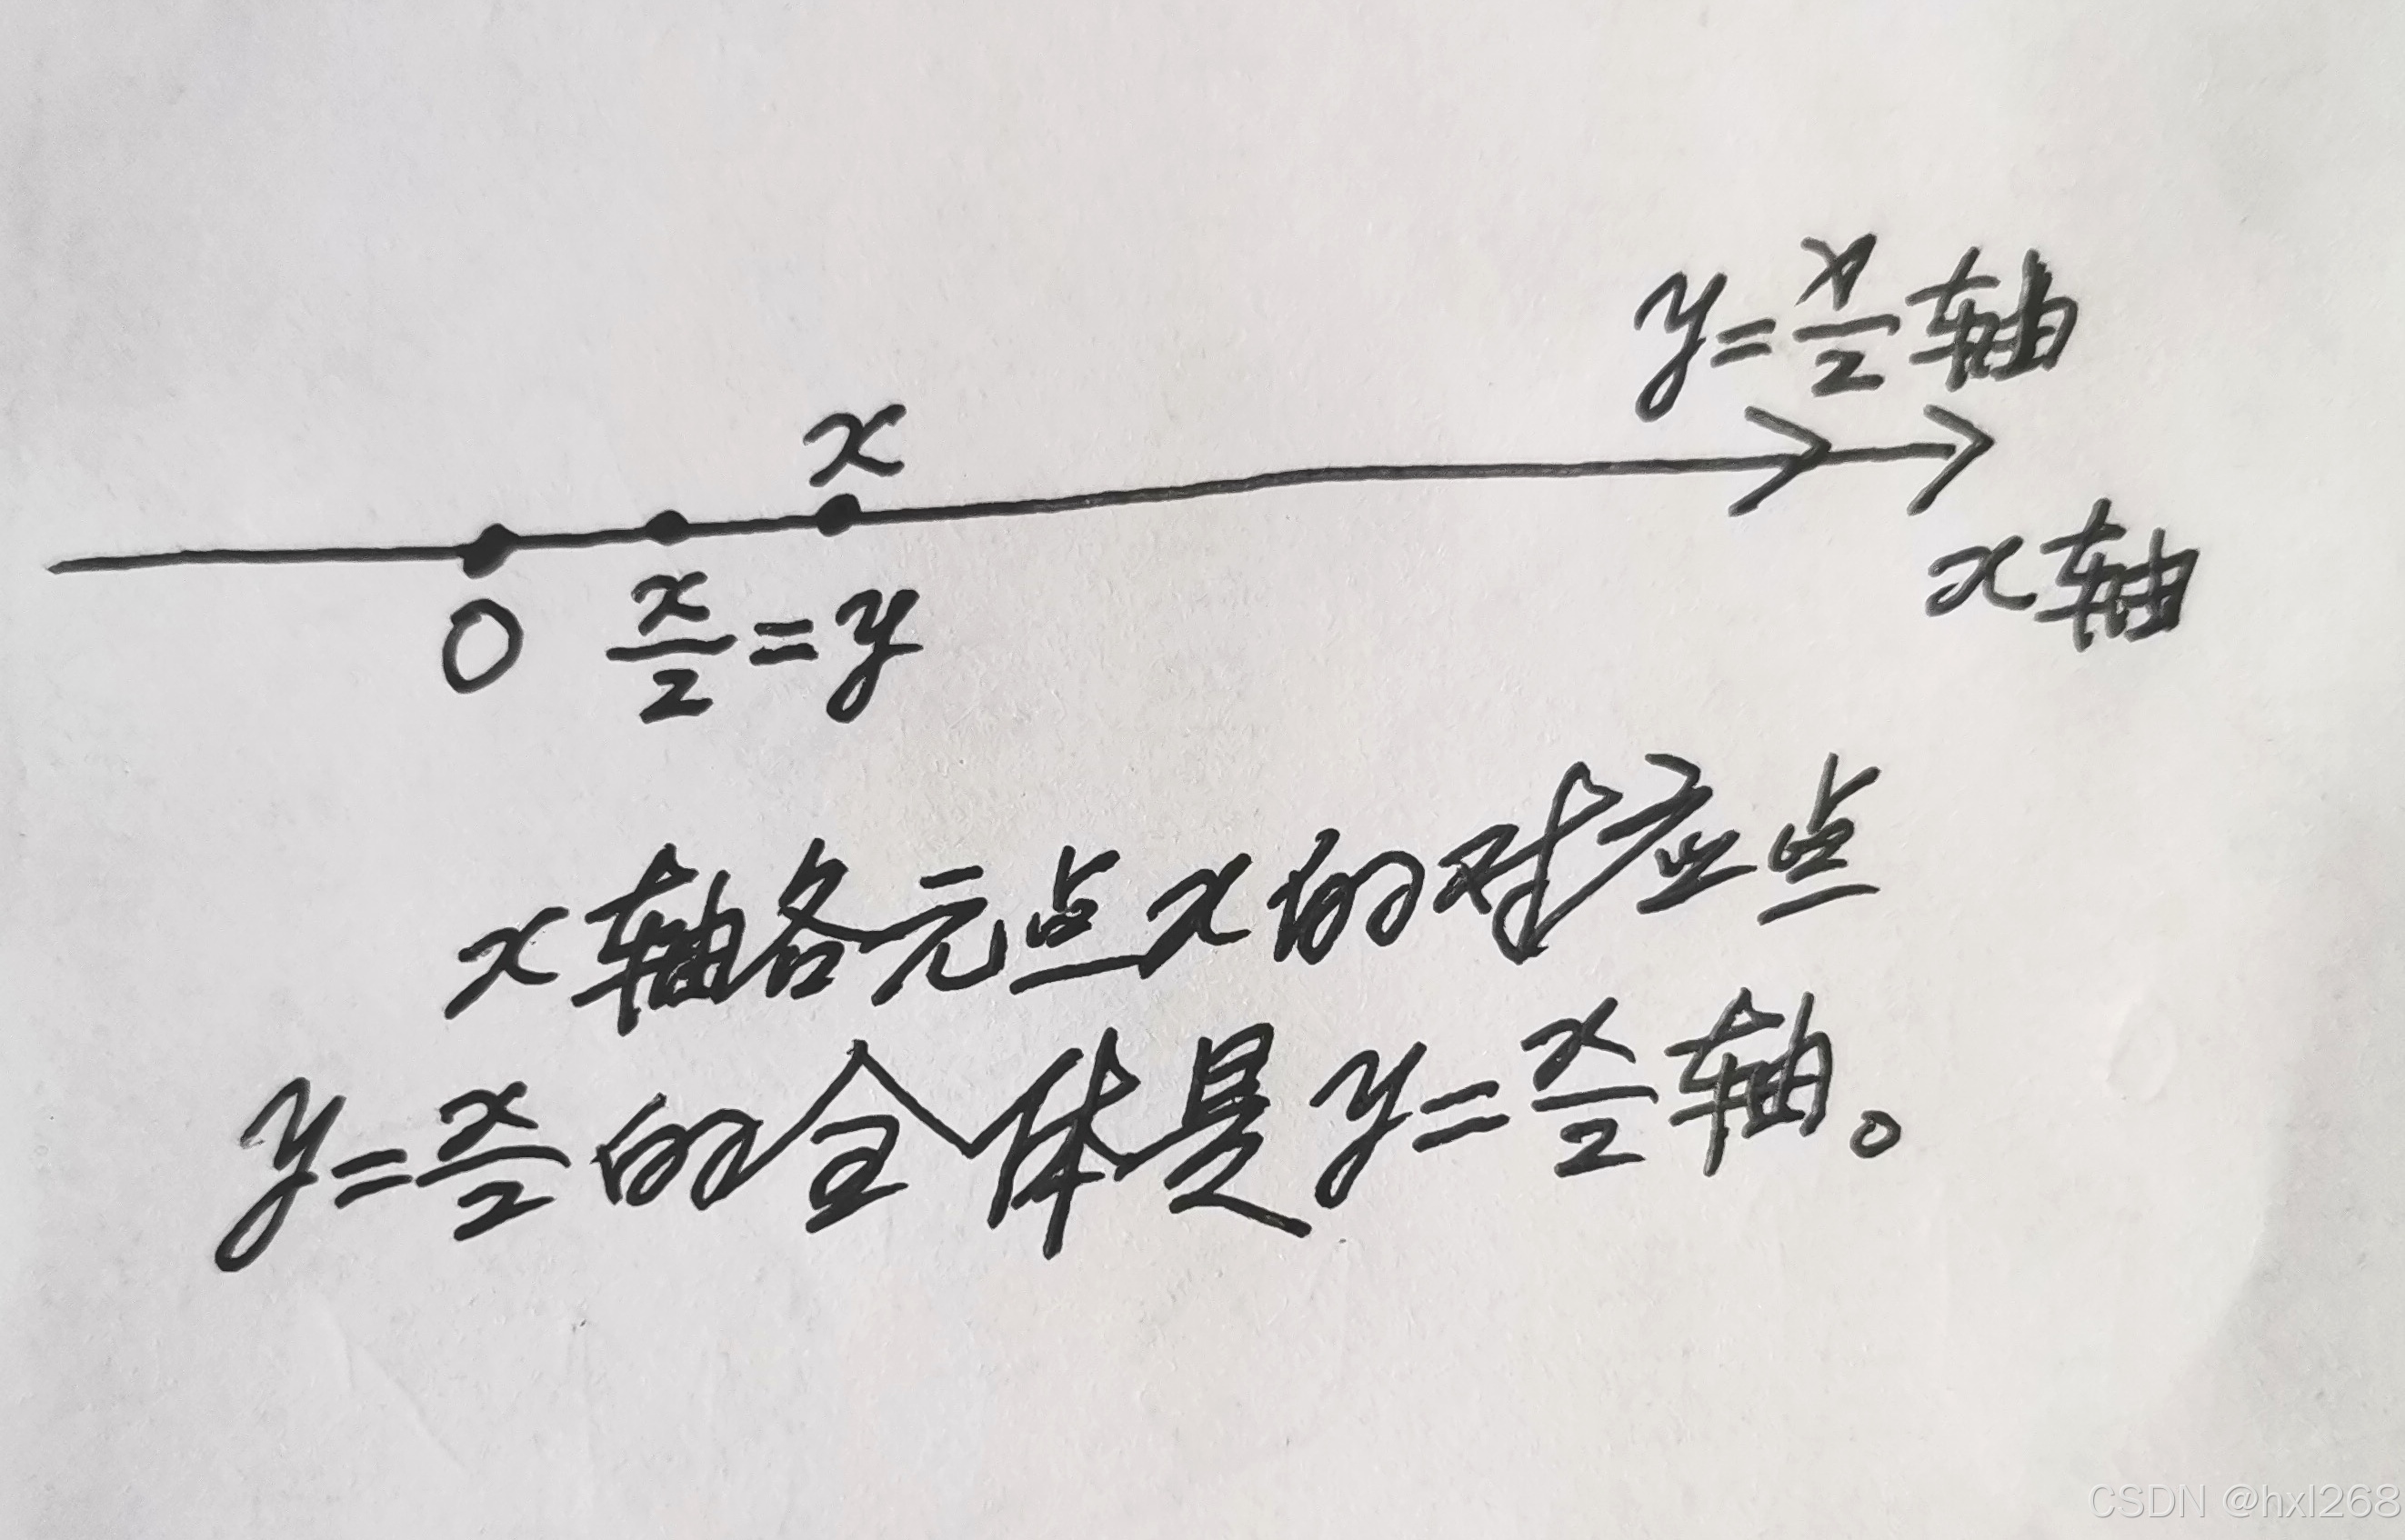 y=x/2轴
x
x轴
0 x/2=y
x轴各元点x的对应点
y=x/2的全体是y=x/2轴。
CSDN @hxl268